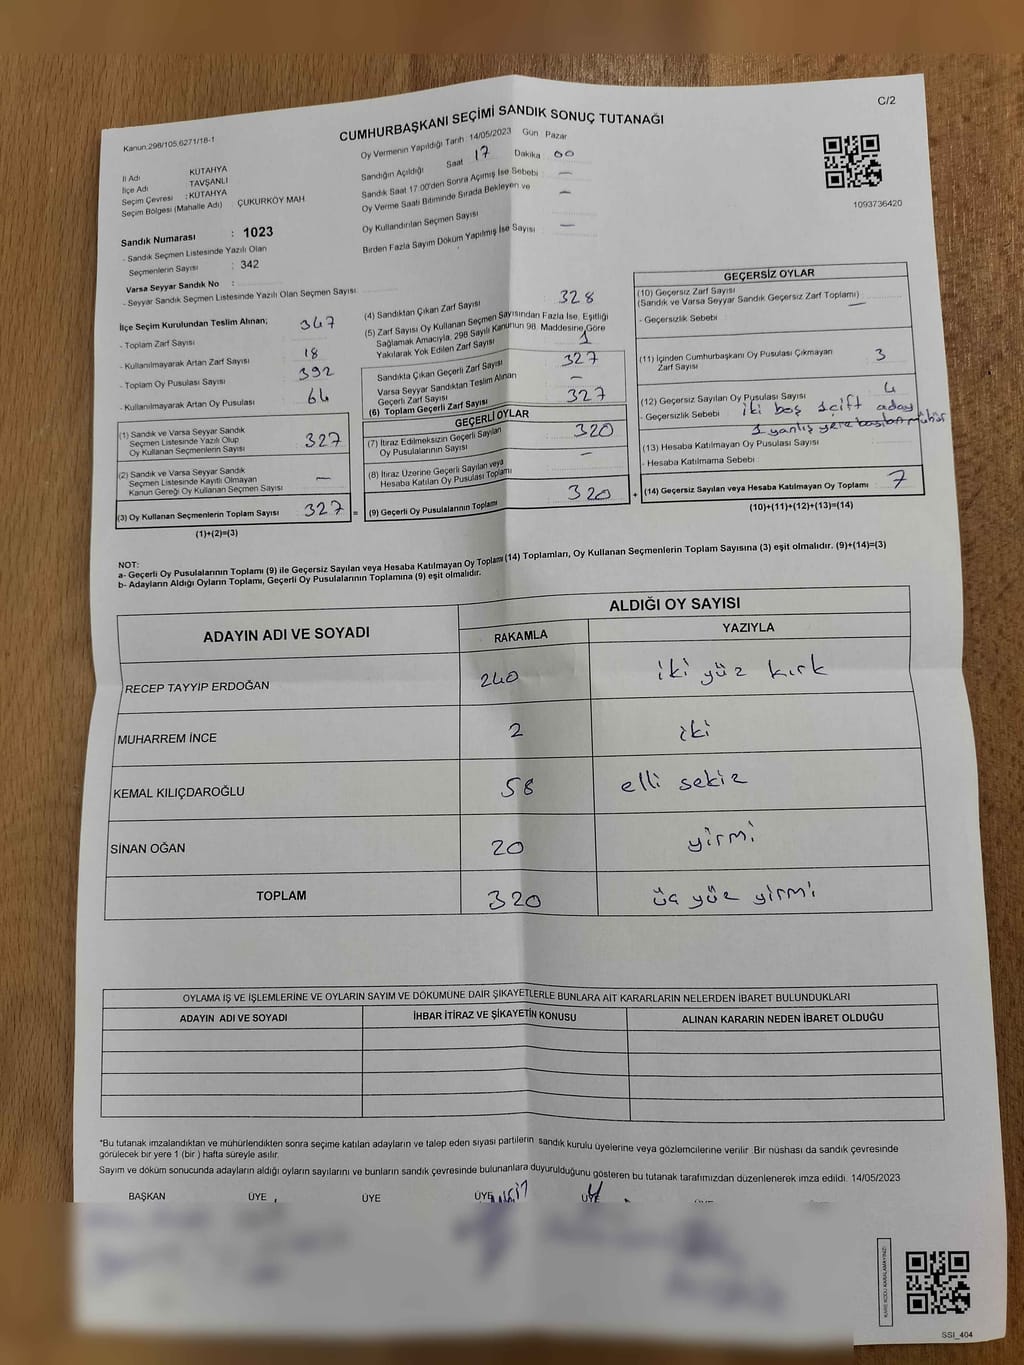 C/2
Kanun;298/105,6271/18-1
CUMHURBAŞKANI SEÇİMİ SANDIK SONUÇ TUTANAĞI
İl Adı KÜTAHYA
İlçe Adı TAVŞANLI
Seçim Çevresi : KÜTAHYA
Seçim Bölgesi (Mahalle Adı) ÇUKURKÖY MAH
Oy Vermenin Yapıldığı Tarih 14/05/2023 Gün Pazar
Sandığın Açıldığı Saat 17 Dakika 00
Sandık Saat 17.00'den Sonra Açımış İse Sebebi —
Oy Verme Saati Bitiminde Sırada Bekleyen ve —
Oy Kullandırılan Seçmen Sayısı
Birden Fazla Sayım Döküm Yapılmış İse Sayısı —
1093736420
Sandık Numarası : 1023
- Sandık Seçmen Listesinde Yazılı Olan
Seçmenlerin Sayısı : 342
Varsa Seyyar Sandık No :
- Seyyar Sandık Seçmen Listesinde Yazılı Olan Seçmen Sayısı
İlçe Seçim Kurulundan Teslim Alınan;
- Toplam Zarf Sayısı 347
- Kullanılmayarak Artan Zarf Sayısı 18
- Toplam Oy Pusulası Sayısı 392
- Kullanılmayarak Artan Oy Pusulası 64
(1) Sandık ve Varsa Seyyar Sandık
Seçmen Listesinde Yazılı Olup
Oy Kullanan Seçmenlerin Sayısı 327
(2) Sandık ve Varsa Seyyar Sandık
Seçmen Listesinde Kayıtlı Olmayan
Kanun Gereği Oy Kullanan Seçmen Sayısı —
(3) Oy Kullanan Seçmenlerin Toplam Sayısı 327 =
(1)+(2)=(3)
(4) Sandıktan Çıkan Zarf Sayısı 328
(5) Zarf Sayısı Oy Kullanan Seçmen Sayısından Fazla İse, Eşitliği
Sağlamak Amacıyla, 298 Sayılı Kanunun 98. Maddesine Göre
Yakılarak Yok Edilen Zarf Sayısı 1
Sandıkta Çıkan Geçerli Zarf Sayısı 327
Varsa Seyyar Sandıktan Teslim Alınan
Geçerli Zarf Sayısı —
(6) Toplam Geçerli Zarf Sayısı 327
GEÇERLİ OYLAR
(7) İtiraz Edilmeksizin Geçerli Sayılan
Oy Pusulasının Sayısı 320
(8) İtiraz Üzerine Geçerli Sayılan veya
Hesaba Katılan Oy Pusulası Toplamı —
(9) Geçerli Oy Pusulalarının Toplamı 320 +
GEÇERSİZ OYLAR
(10) Geçersiz Zarf Sayısı
(Sandık ve Varsa Seyyar Sandık Geçersiz Zarf Toplamı) —
- Geçersizlik Sebebi :
(11) İçinden Cumhurbaşkanı Oy Pusulası Çıkmayan
Zarf Sayısı 3
(12) Geçersiz Sayılan Oy Pusulası Sayısı 4
- Geçersizlik Sebebi iki boş 1 çift aday
1 yanlış yere basılan mühür
(13) Hesaba Katılmayan Oy Pusulası Sayısı
- Hesaba Katılmama Sebebi :
(14) Geçersiz Sayılan veya Hesaba Katılmayan Oy Toplamı 7
(10)+(11)+(12)+(13)=(14)
NOT:
a- Geçerli Oy Pusulalarının Toplamı (9) ile Geçersiz Sayılan veya Hesaba Katılmayan Oy Toplamı (14) Toplamları, Oy Kullanan Seçmenlerin Toplam Sayısına (3) eşit olmalıdır. (9)+(14)=(3)
b- Adayların Aldığı Oyların Toplamı, Geçerli Oy Pusulalarının Toplamına (9) eşit olmalıdır.
ADAYIN ADI VE SOYADI
ALDIĞI OY SAYISI
RAKAMLA YAZIYLA
RECEP TAYYİP ERDOĞAN 240 iki yüz kırk
MUHARREM İNCE 2 iki
KEMAL KILIÇDAROĞLU 58 elli sekiz
SİNAN OĞAN 20 yirmi
TOPLAM 320 üç yüz yirmi
OYLAMA İŞ VE İŞLEMLERİNE VE OYLARIN SAYIM VE DÖKÜMÜNE DAİR ŞİKAYETLERLE BUNLARA AİT KARARLARIN NELERDEN İBARET BULUNDUKLARI
ADAYIN ADI VE SOYADI İHBAR İTİRAZ VE ŞİKAYETİN KONUSU ALINAN KARARIN NEDEN İBARET OLDUĞU
*Bu tutanak imzalandıktan ve mühürlendikten sonra seçime katılan adayların ve talep eden siyasi partilerin sandık kurulu üyelerine veya gözlemcilerine verilir. Bir nüshası da sandık çevresinde
görülecek bir yere 1 (bir) hafta süreyle asılır.
Sayım ve döküm sonucunda adayların aldığı oyların sayılarını ve bunların sandık çevresinde bulunanlara duyurulduğunu gösteren bu tutanak tarafımızdan düzenlenerek imza edildi. 14/05/2023
BAŞKAN ÜYE ÜYE ÜYE ÜYE
KARE KODU KARALAMAYINIZ!
SSI_404